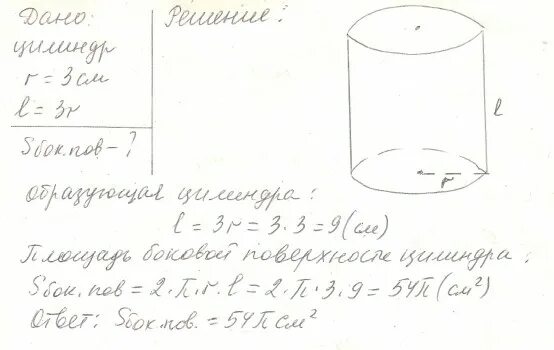 Дано:
цилиндр
r = 3 см
l = 3r
Sбок.пов - ?
Решение:
l
r
Образующая цилиндра:
l = 3r = 3·3 = 9 (см)
Площадь боковой поверхности цилиндра:
Sбок.пов = 2·π·r·l = 2·π·3·9 = 54π (см²)
Ответ: Sбок.пов. = 54π см²